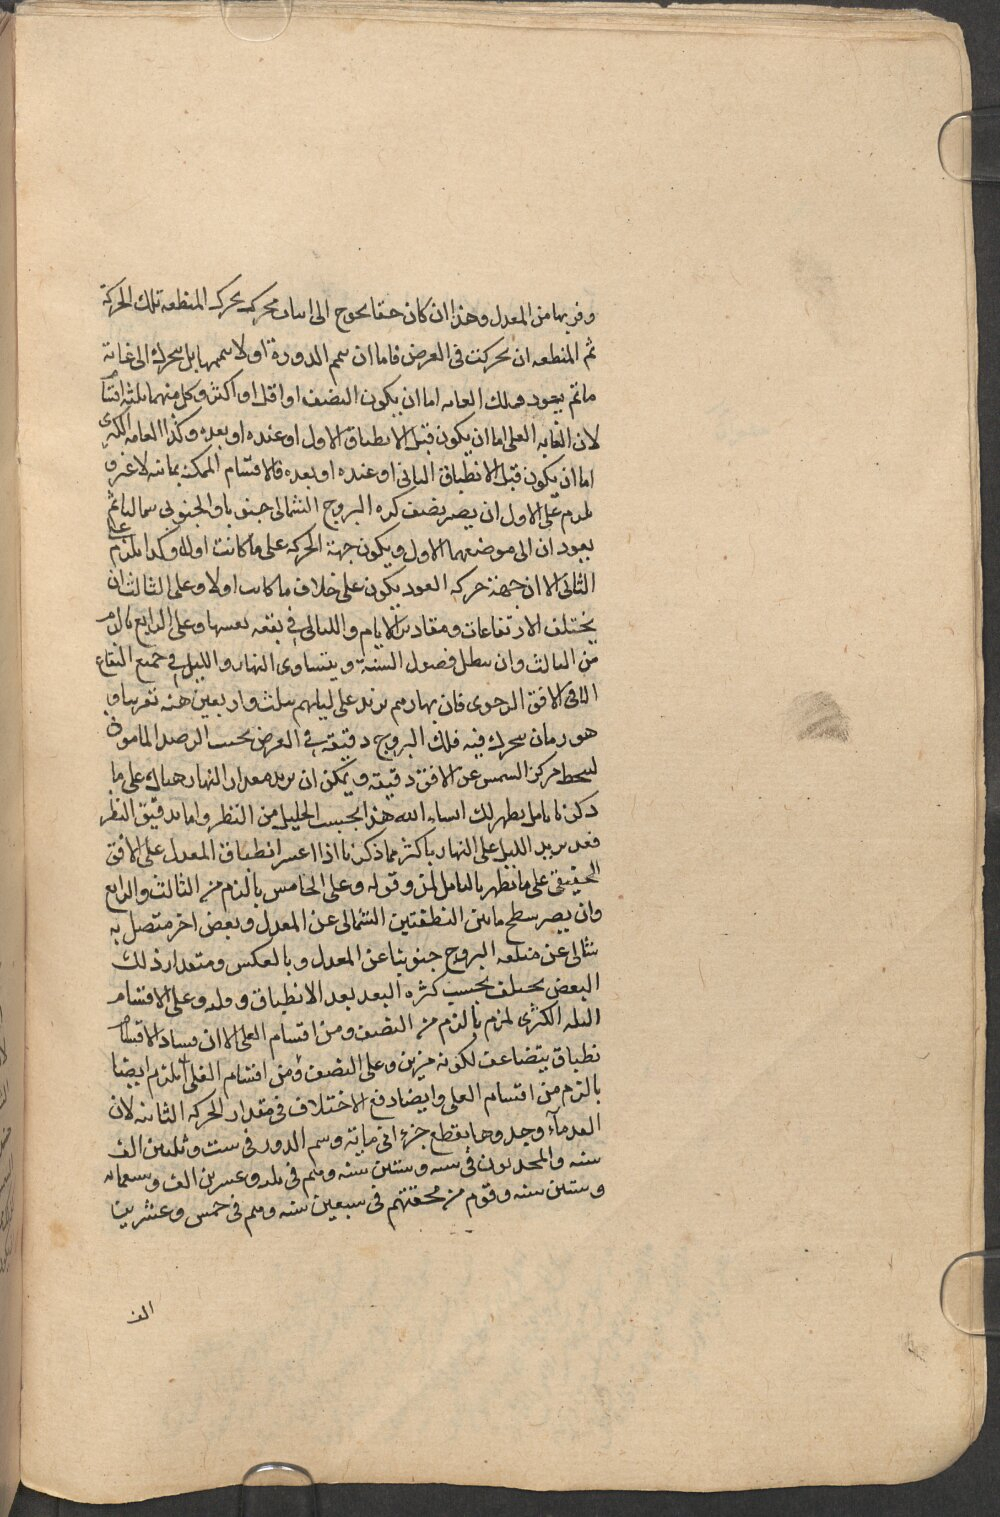 وقربها من المعدل وهذا ان كان حقا يحوج الى اثبات محرك يحرك المنطقه تلك الحركة
ثم المنطقه ان تحركت فى العرض فاما ان يتمم الدورة او لا يتممها بل يتحرك الى غاية
ما ثم يعود فتلك الغايه اما ان يكون النصف او اقل او اكثر وكل منهما ثلثة اقسام
لان الغايه القلى اما ان يكون قبل الانطباق الاول او عنده او بعده وكذا الغايه الكثرى
اما ان يكون قبل الانطباق الثانى او عنده او بعده فالاقسام الممكنه ثمانيه لا غير و
يلزم على الاول ان يصير نصف كره البروج الشمالى جنوبيا والجنوبى شماليا ثم
يعودان الى موضعهما الاول ويكون جهة الحركه على ما كانت اولا وكذا يلزم على
الثانى الا ان جهة حركه العود يكون على خلاف ما كانت اولا وعلى الثالث ان
يختلف الارتفاعات ومقادير الايام والليالى فى بقعه بعينها وعلى الرابع ما لزم
من الثالث وان يبطل فصول السنة ويتساوى النهار والليل فى جميع البقاع
الا فى الافق الرحوى فان نهارهم يزيد على ليلهم بثلث واربعين سنه تقريبا و
هو زمان يتحرك فيه فلك البروج دقيقه فى العرض بحسب الرصد المأمونى
لينحط مركز الشمس عن الافق دقيقه ويمكن ان يزيد مقدار النهار هناك على ما
ذكرنا تامل يظهر لك ان شاء الله هذا بحسب الجليل من النظر واما بدقيق النظر
فقد يزيد الليل على النهار باكثر مما ذكرنا اذا اعتبر انطباق المعدل على الافق
الحقيقى على ما يظهر بالتامل لمن وقوله وعلى الخامس ما لزم من الثالث والرابع
وان يصير سطح ما بين النطقتين الشمالى عن المعدل وبعض اخر متصل به
شمالى عن منطقه البروج جنوبيا عن المعدل وبالعكس ومقدار ذلك
البعض يختلف بحسب كثره البعد بعد الانطباق وقله وعلى الاقسام
الثلثه الكثرى يلزم ما لزم من النصف ومن اقسام القلى الا ان فساد الاقسام
نطباق يتضاعف لكونه مرتين وعلى النصف ومن اقسام القلى يلزم ايضا
ما لزم من اقسام القلى وايضا دفع الاختلاف فى مقدار الحركه الثانيه لان
القدماء وجدوها يقطع جزءا فى ماية ويتم الدور فى ست وثلثين الف
سنه والمحدثون فى سته وستين سنه ويتم فى ثلثه وعشرين الف وسبعمائه
وستين سنه وقوم من محققيهم فى سبعين سنه ويتم فى خمس وعشرين
الف